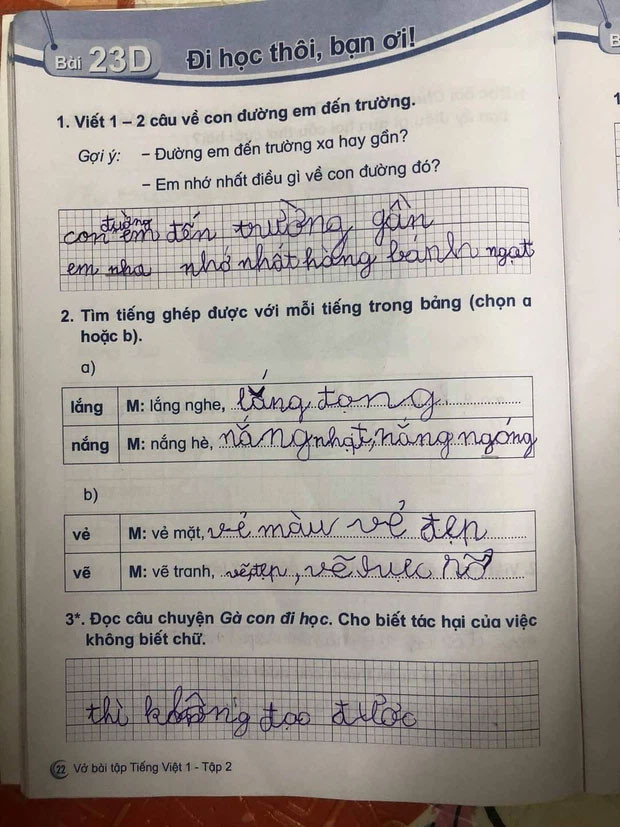 Bài 23D Đi học thôi, bạn ơi!
1. Viết 1 – 2 câu về con đường em đến trường.
Gợi ý: – Đường em đến trường xa hay gần?
– Em nhớ nhất điều gì về con đường đó?
con đường em đến trường gần
em nha nhớ nhất hàng bánh ngạt
2. Tìm tiếng ghép được với mỗi tiếng trong bảng (chọn a
hoặc b).
a)
lắng M: lắng nghe, lắng đọng
nắng M: nắng hè, nắng nhạt, nắng ngóng
b)
vẻ M: vẻ mặt, vẻ màu vẻ đẹp
vẽ M: vẽ tranh, vẽ đẹp, vẽ rực rỡ
3*. Đọc câu chuyện Gà con đi học. Cho biết tác hại của việc
không biết chữ.
thì không đạo được
22 Vở bài tập Tiếng Việt 1 - Tập 2